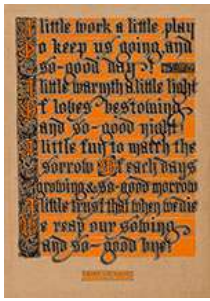 A little work a little play
To keep us going, and
so-good day!
A little warmth a little light
Of loves bestowing
And so-good night!
A little fun to match the
sorrow Of each days
growing & so-good morrow
A little trust that when we die
We reap our sowing
And so-good bye!